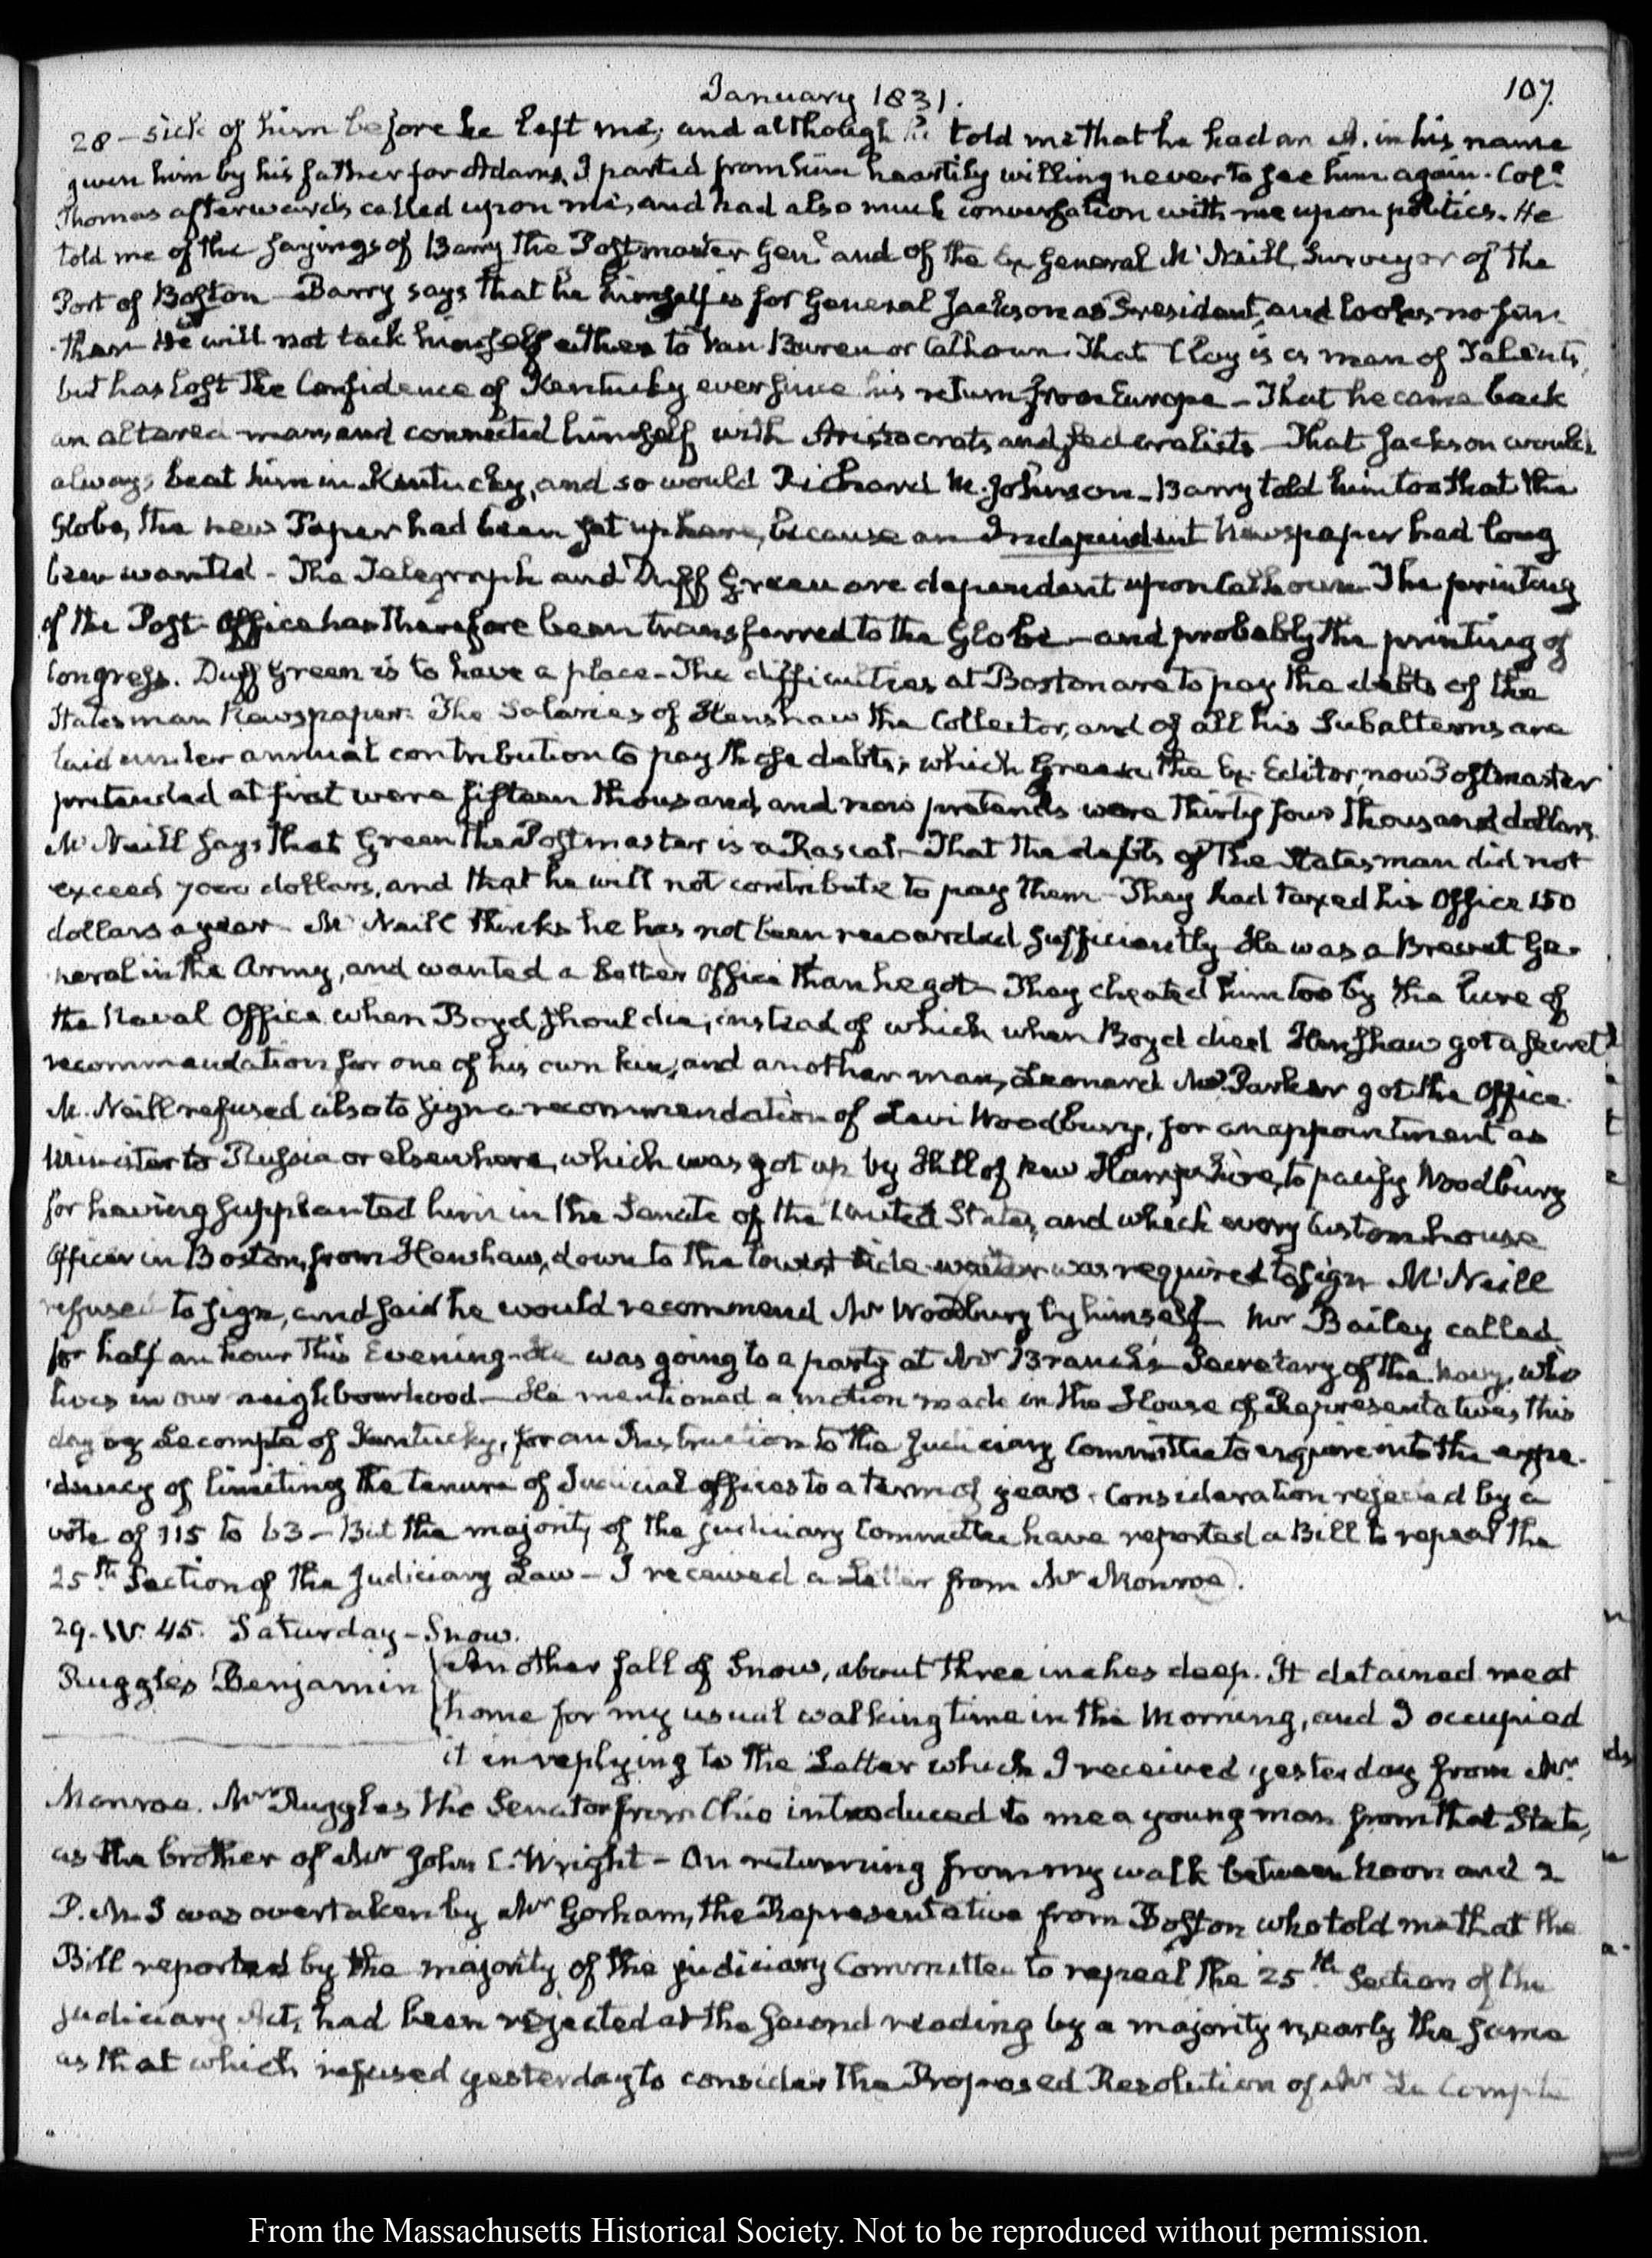 January 1831.
107.
28 – sick of him before he left me; and although he told me that he had an A. in his name
given him by his father for Adams, I parted from him heartily willing never to see him again. Col.l
Thomas afterwards called upon me, and had also much conversation with me upon politics. He
told me of the sayings of Barry the Postmaster Gen.l and of the Ex General McNeill, Surveyor of the
Port of Boston – Barry says that he himself is for General Jackson as President, and looks no fur-
ther He will not tack himself either to Van Buren or Calhoun. That Clay is a man of Talents,
but has lost the Confidence of Kentucky ever since his return from Europe – That he came back
an altered man, and connected himself with Aristocrats and federalists – That Jackson would
always beat him in Kentucky, and so would Richard M. Johnson – Barry told him too that the
Globe, the new Paper had been set up here, because an Independent Newspaper had long
been wanted – The Telegraph and Duff Green are dependent upon Calhoun. The printing
of the Post-Office has therefore been transferred to the Globe – and probably the printing of
Congress. Duff Green is to have a place – The difficulties at Boston are to pay the debts of the
Statesman Newspaper. The Salaries of Henshaw the Collector, and of all his Subalterns are
laid under annual contribution to pay those debts; which Green, the Ex-Editor, now Postmaster
pretended at first were fifteen thousand, and now pretends were thirty four thousand dollars.
McNeill says that Green the Postmaster is a Rascal – That the debts of the Statesman did not
exceed 7000 dollars, and that he will not contribute to pay them – They had taxed his Office 150
dollars a year – McNeill thinks he has not been rewarded sufficiently He was a Brevet Ge-
neral in the Army, and wanted a better Office than he got – They cheated him too by the lure of
the Naval Office when Boyd should die; instead of which when Boyd died Henshaw got a secret
recommendation for one of his own kin, and another man, Leonard M. Parker got the Office.
McNeill refused also to sign a recommendation of Levi Woodbury, for an appointment as
Minister to Russia or elsewhere, which was got up by Hill of New Hampshire, to pacify Woodbury
for having supplanted him in the Senate of the United States, and which every Custom house
Officer in Boston, from Henshaw, down to the lowest tide-waiter was required to sign McNeill
refused to sign, and said he would recommend Mr Woodbury by himself – Mr Bailey called
for half an hour this Evening – He was going to a party at Mr Branch's Secretary of the Navy, who
lives in our neighbourhood – He mentioned a motion made in the House of Representatives this
day by Lecompte of Kentucky, for an Instruction to the Judiciary Committee to enquire into the expe-
diency of limiting the tenure of Judicial offices to a term of years. Consideration rejected by a
vote of 115 to 63 – But the majority of the judiciary Committee have reported a Bill to repeal the
25.th Section of the Judiciary Law – I received a Letter from Mr Monroe.
29. IV. 45. Saturday – Snow.
Ruggles Benjamin
Another fall of Snow, about three inches deep. It detained me at
home for my usual walking time in the Morning, and I occupied
it in replying to the Letter which I received yesterday from Mr
Monroe. Mr Ruggles the Senator from Ohio introduced to me a young man from that State,
as the brother of Mr John C. Wright – On returning from my walk between Noon and 2
P.M. I was overtaken by Mr Gorham, the Representative from Boston who told me that the
Bill reported by the majority of the judiciary Committee to repeal the 25.th Section of the
judiciary Act, had been rejected at the second reading by a majority nearly the same
as that which refused yesterday to consider the Proposed Resolution of Mr Le Compte
From the Massachusetts Historical Society. Not to be reproduced without permission.